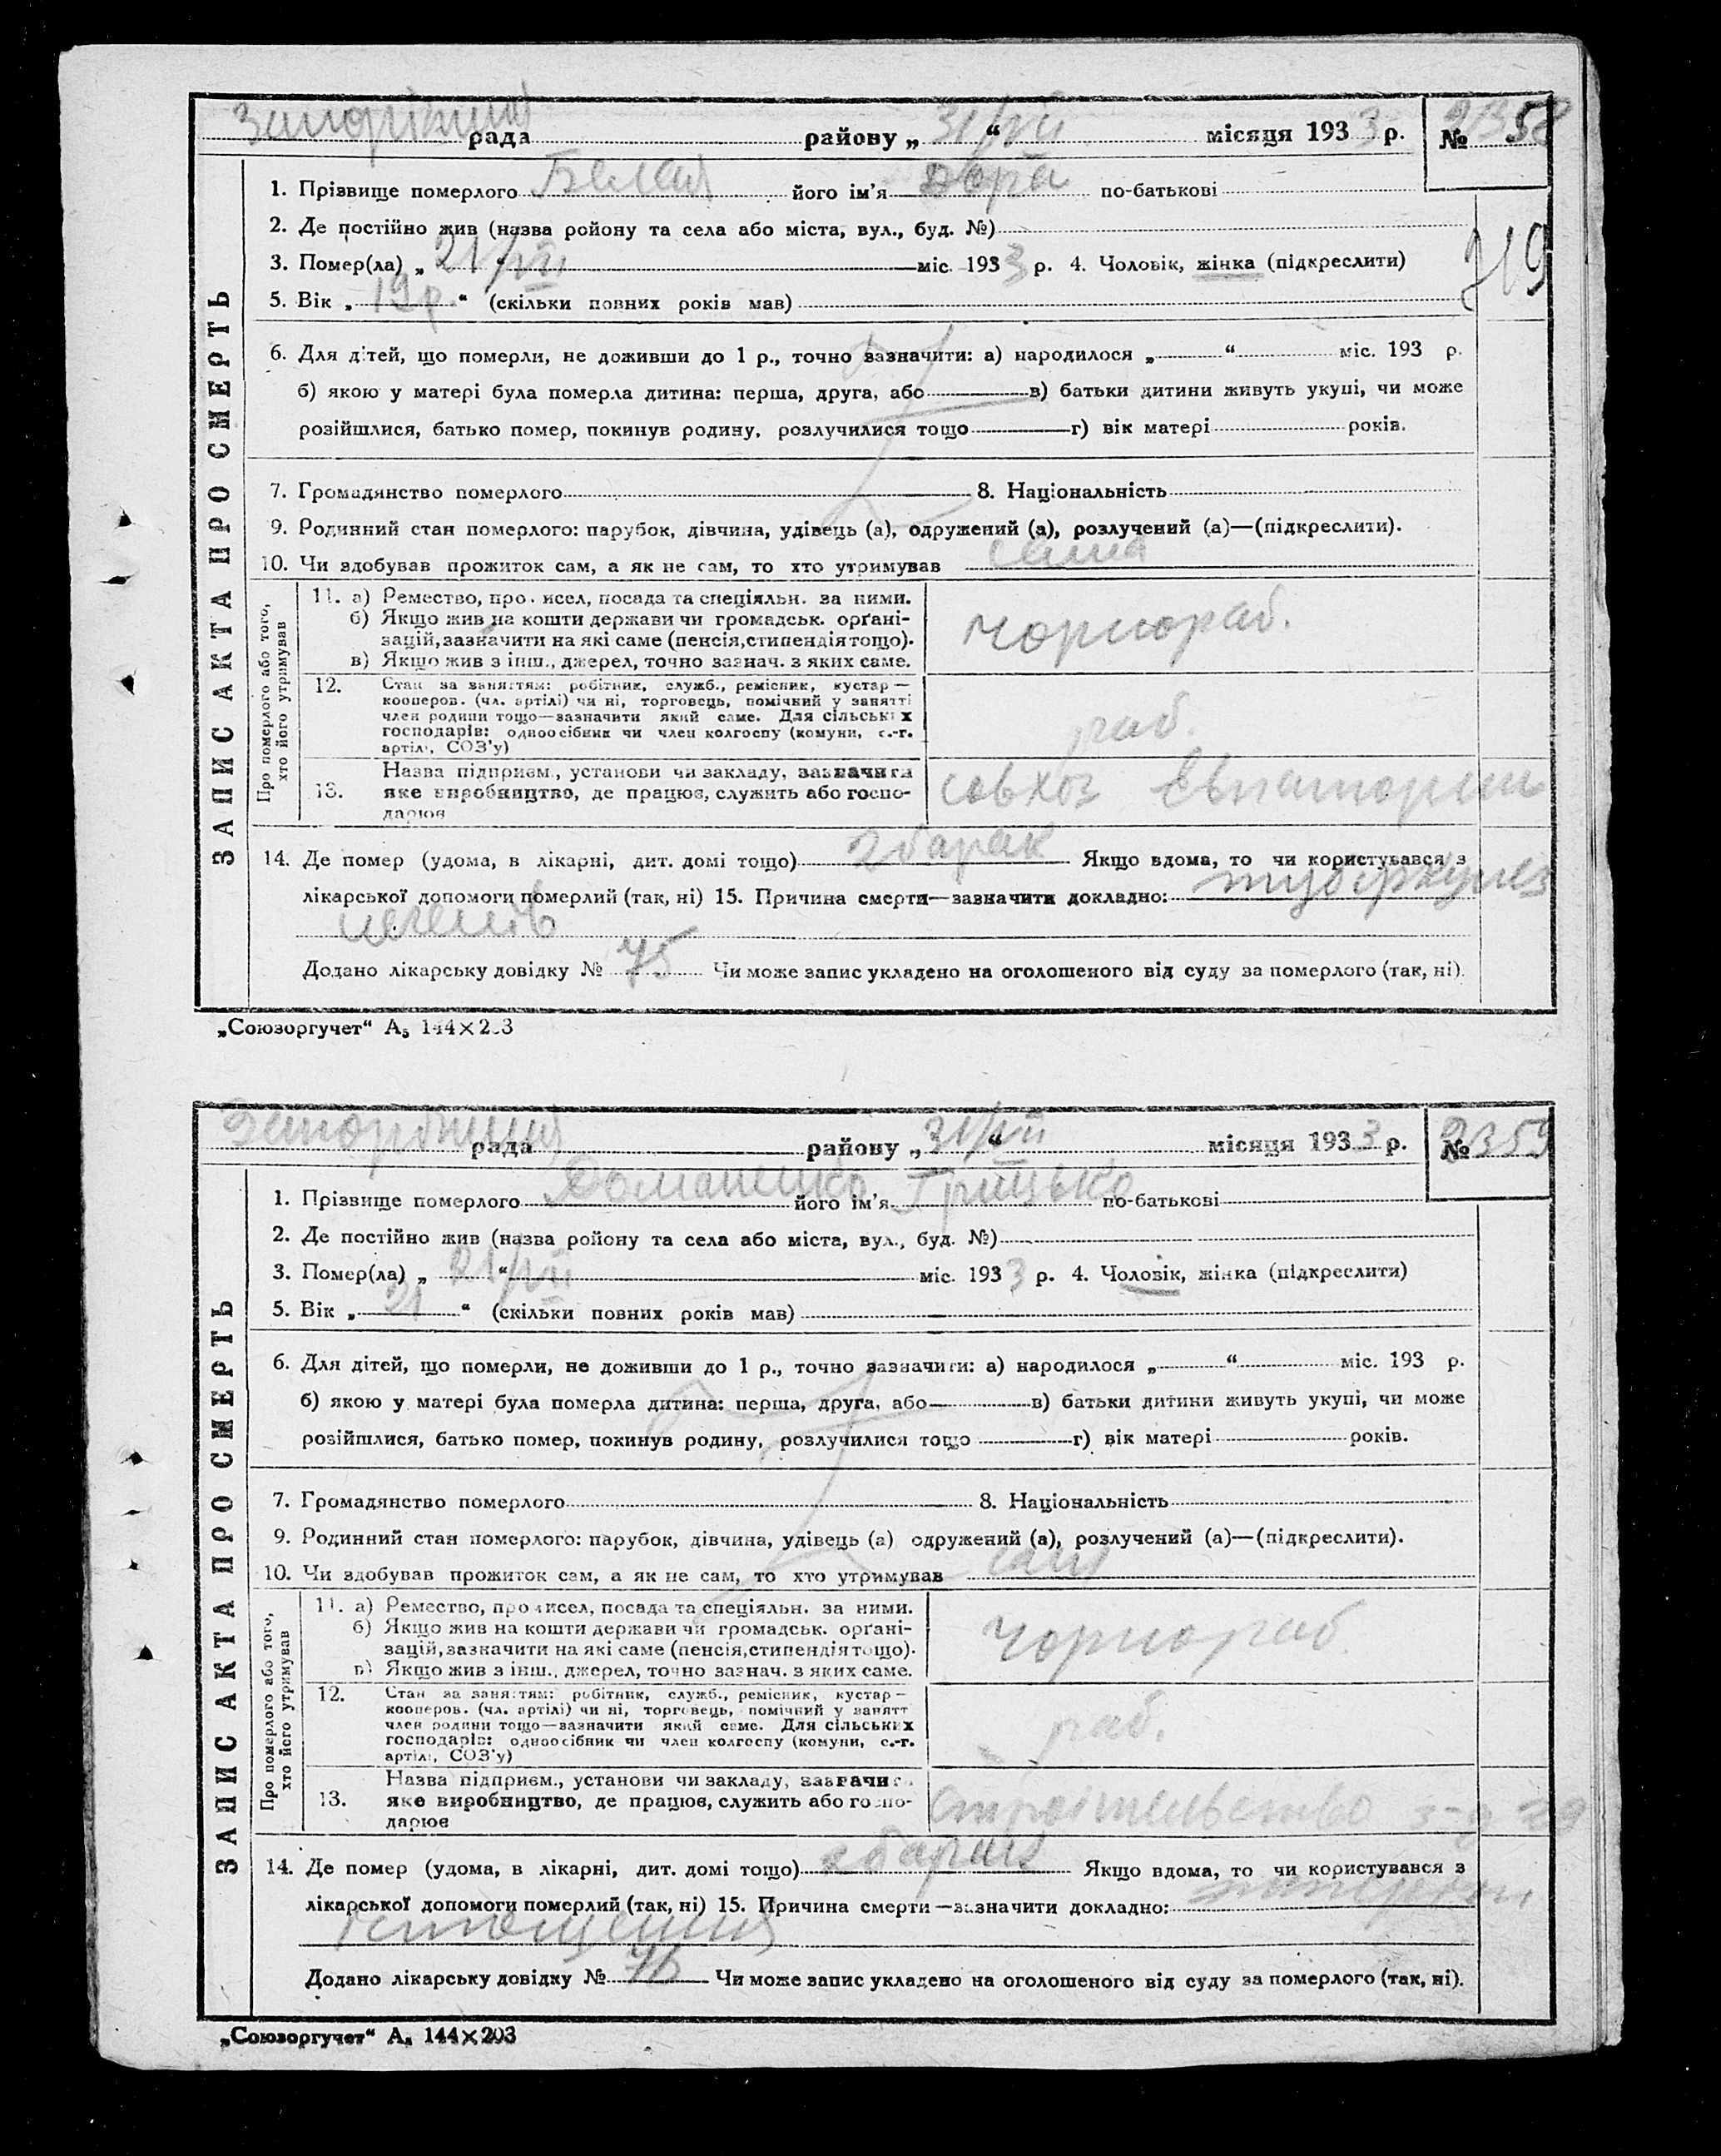 Запоріжжя рада районy „31/VII“ місяця 1933 р. № 2358
1. Прізвище померлого Белая його ім'я Дора по-батькові
2. Де постійно жив (назва ройону та села або міста, вул., буд. №)
3. Помер(ла) „21/VII“ міс. 1933 р. 4. Чоловік, жінка (підкреслити)
719
5. Вік „19 р.“ (скільки повних років мав)
6. Для дітей, що померли, не доживши до 1 р., точно зазначити: а) народилося „ “ міс. 193 р.
б) якою у матері була померла дитина: перша, друга, або в) батьки дитини живуть укупі, чи може
розійшлися, батько помер, покинув родину, розлучилися тощо г) вік матері років.
7. Громадянство померлого 8. Національність
9. Родинний стан померлого: парубок, дівчина, удівець (а), одружений (а), розлучений (а)—(підкреслити).
10. Чи здобував прожиток сам, а як не сам, то хто утримував сама
ЗАПИС АКТА ПРО СМЕРТЬ
Про померлого або того, хто його утримував
11. а) Ремество, промисел, посада та спеціяльн. за ними.
б) Якщо жив на кошти держави чи громадськ. орґані-
зацій, зазначити на які саме (пенсія, стипендія тощо).
в) Якщо жив з інш., джерел, точно зазнач. з яких саме.
чорнораб.
12. Стан за заняттям: робітник, служб., ремісник, кустар—
кооперов. (чл. артілі) чи ні, торговець, помічний у занятті
член родини тощо—зазначити який саме. Для сільських
господарів: одноосібник чи член колгоспу (комуни, с.-г.
артілі, СОЗ'у)
раб.
Назва підприєм., установи чи закладу, зазначити
13. яке виробництво, де працює, служить або госпо-
дарює
совхоз Євпатории
14. Де помер (удома, в лікарні, дит. домі тощо) 2 барак Якщо вдома, то чи користувався з
лікарської допомоги померлий (так, ні) 15. Причина смерти—зазначити докладно: туберкулез
легенів
Додано лікарську довідку № 75 Чи може запис укладено на оголошеного від суду за померлого (так, ні).
„Союзоргучет“ А₅ 144×203
Запоріжжя рада району „31/VII“ місяця 1933 р. № 2359
1. Прізвище померлого Доманенко його ім'я Грицько по-батькові
2. Де постійно жив (назва ройону та села або міста, вул., буд. №)
3. Помер(ла) „21/VII“ міс. 1933 р. 4. Чоловік, жінка (підкреслити)
5. Вік „21“ (скільки повних років мав)
6. Для дітей, що померли, не доживши до 1 р., точно зазначити: а) народилося „ “ міс. 193 р.
б) якою у матері була померла дитина: перша, друга, або в) батьки дитини живуть укупі, чи може
розійшлися, батько помер, покинув родину, розлучилися тощо г) вік матері років.
7. Громадянство померлого 8. Національність
9. Родинний стан померлого: парубок, дівчина, удівець (а) одружений (а), розлучений (а)—(підкреслити).
10. Чи здобував прожиток сам, а як не сам, то хто утримував сам
ЗАПИС АКТА ПРО СМЕРТЬ
Про померлого або того, хто його утримував
11. а) Ремество, промисел, посада та спеціяльн. за ними.
б) Якщо жив на кошти держави чи громадськ. орґані-
зацій, зазначити на які саме (пенсія, стипендія тощо).
в) Якщо жив з інш., джерел, точно зазнач. з яких саме.
чорнораб
12. Стан за заняттям: робітник, служб., ремісник, кустар—
кооперов. (чл. артілі) чи ні, торговець, помічний у занятт
член родини тощо—зазначити який саме. Для сільських
господарів: одноосібник чи член колгоспу (комуни, с.-г.
артілі, СОЗ'у)
раб.
Назва підприєм., установи чи закладу, зазначити
13. яке виробництво, де працює, служить або госпо-
дарює
строітельство з-д 29
14. Де помер (удома, в лікарні, дит. домі тощо) 2 барак Якщо вдома, то чи користувався з
лікарської допомоги померлий (так, ні) 15. Причина смерти—зазначити докладно:
істощения
Додано лікарську довідку № 76 Чи може запис укладено на оголошеного від суду за померлого (так, ні).
„Союзоргучет“ А₅ 144×203